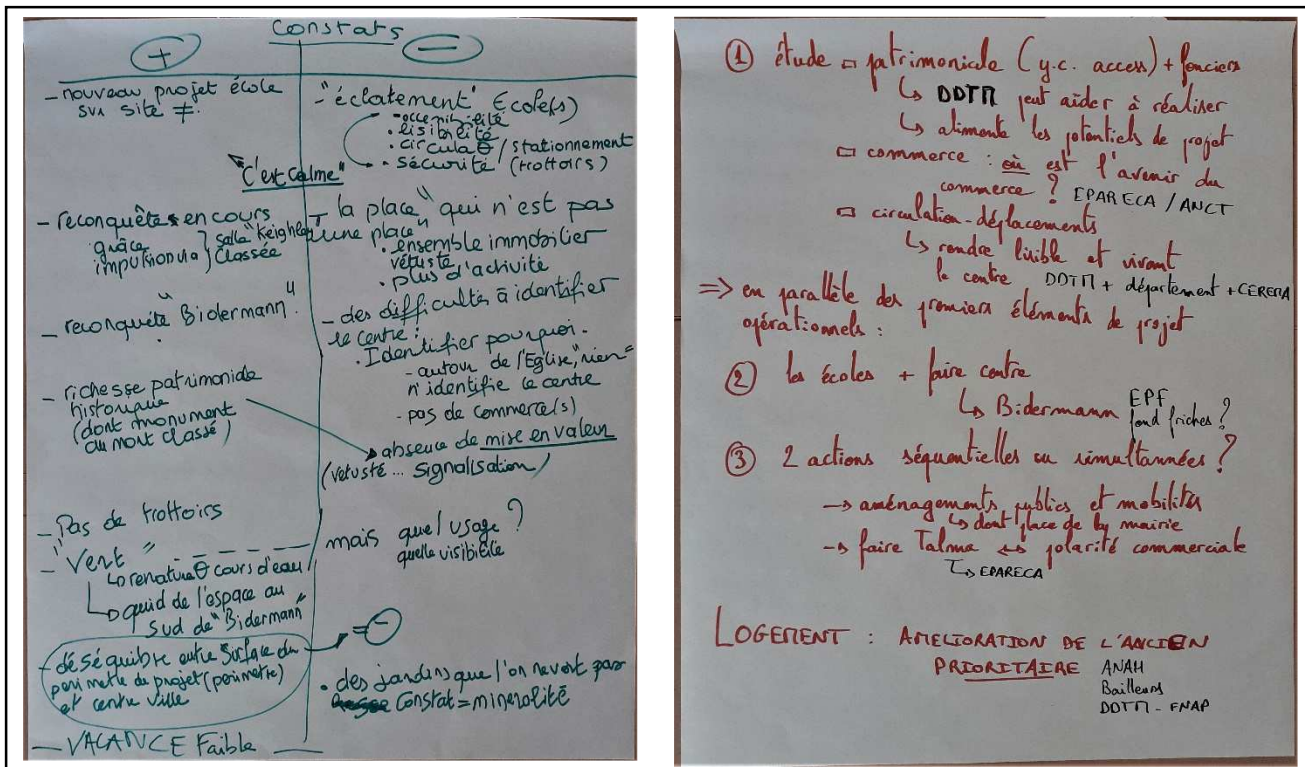 Constats
+
- nouveau projet école
sur site ≠.
"C'est calme"
- reconquêtes en cours
grâce
impulsion via
salle "Keighley"
classée
- reconquête "Bidermann".
- richesse patrimoniale
historique
(dont monument
au mort classé)
- Pas de trottoirs
- "Vert"
↳ renaturaθ cours d'eau
↳ quid de l'espace au
sud de "Bidermann"
- déséquibre entre surface du
perimetre de projet (perimetre)
et centre ville
— VACANCE Faible —
-
- "éclatement" Ecole(s)
• accessibilité
• lisibilité
• circulaθ / stationnement
• sécurité (trottoirs)
- "la place" qui n'est pas
"une place"
• ensemble immobilier
vétuste
• plus d'activité
- des difficultés à identifier
le centre :
• Identifier pourquoi.
- autour de l'Eglise, "rien"
n'identifie le centre
- pas de commerce(s)
absence de mise en valeur
(vetusté ... signalisation)
mais quel usage ?
quelle visibilité
= -
• des jardins que l'on ne voit pas
Constat = mineralité
① étude □ patrimoniale (y.c. access) + fonciers
↳ DDTM peut aider à réaliser
↳ alimente les potentiels de projet
□ commerce : où est l'avenir du
commerce ? EPARECA / ANCT
□ circulation - déplacements
↳ rendre lisible et vivant
le centre DDTM + département + CEREMA
=> en parallèle des premiers éléments de projet
opérationnels :
② les écoles + faire centre
↳ Bidermann EPF
fond friches ?
③ 2 actions séquentielles ou simultannées ?
→ aménagements publics et mobilités
↳ dont place de la mairie
→ faire Talma ↔ polarité commerciale
↳ EPARECA
LOGEMENT : AMELIORATION DE L'ANCIEN
PRIORITAIRE ANAH
Bailleurs
DDTM - FNAP